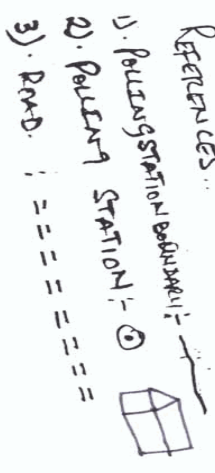 REFERENCES..
1). POLLING STATION BOUNDARY:-
2). POLLING STATION:-
3). ROAD. :